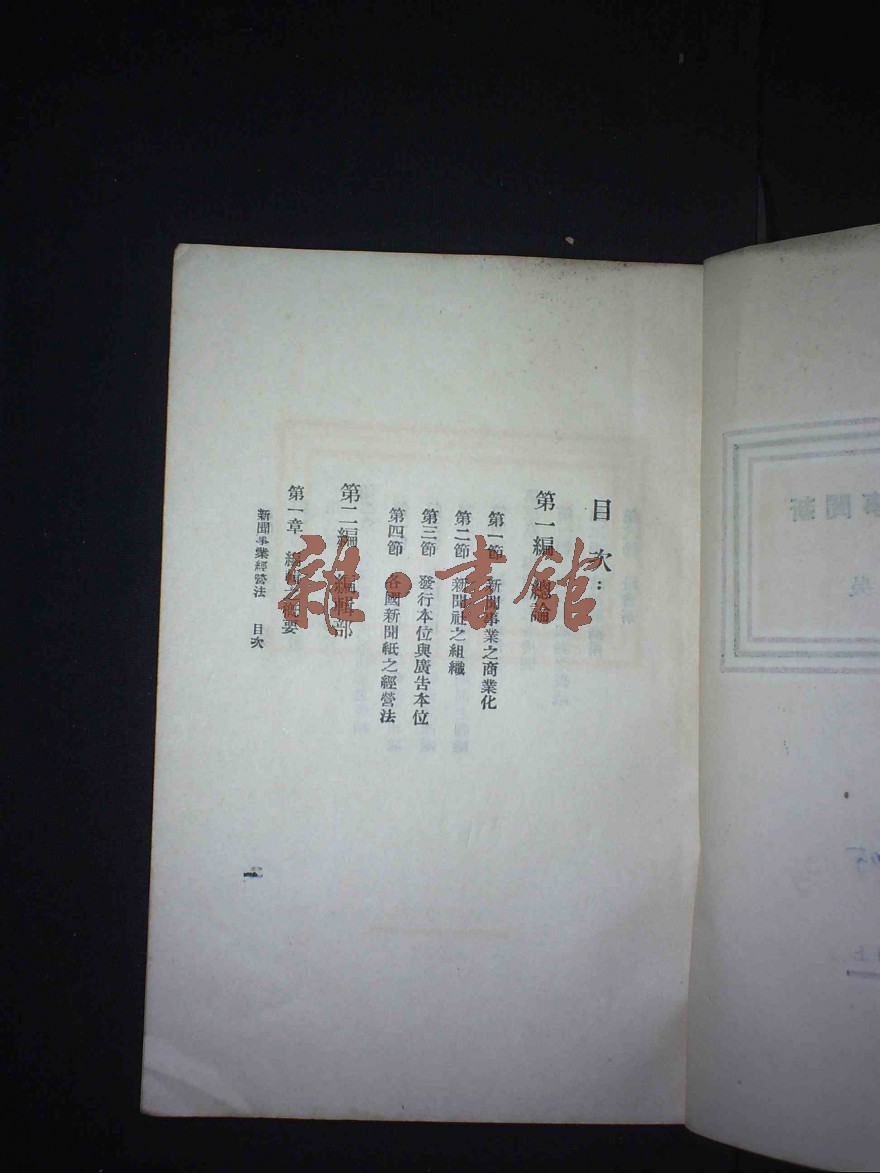 目次：
第一編 總論
第一節 新聞事業之商業化
第二節 新聞社之組織
第三節 發行本位與廣告本位
第四節 各國新聞紙之經營法
第二編 編輯部
第一章 編輯之概要
新聞事業經營法 目次
一
雜·書館
新聞事
吳
上